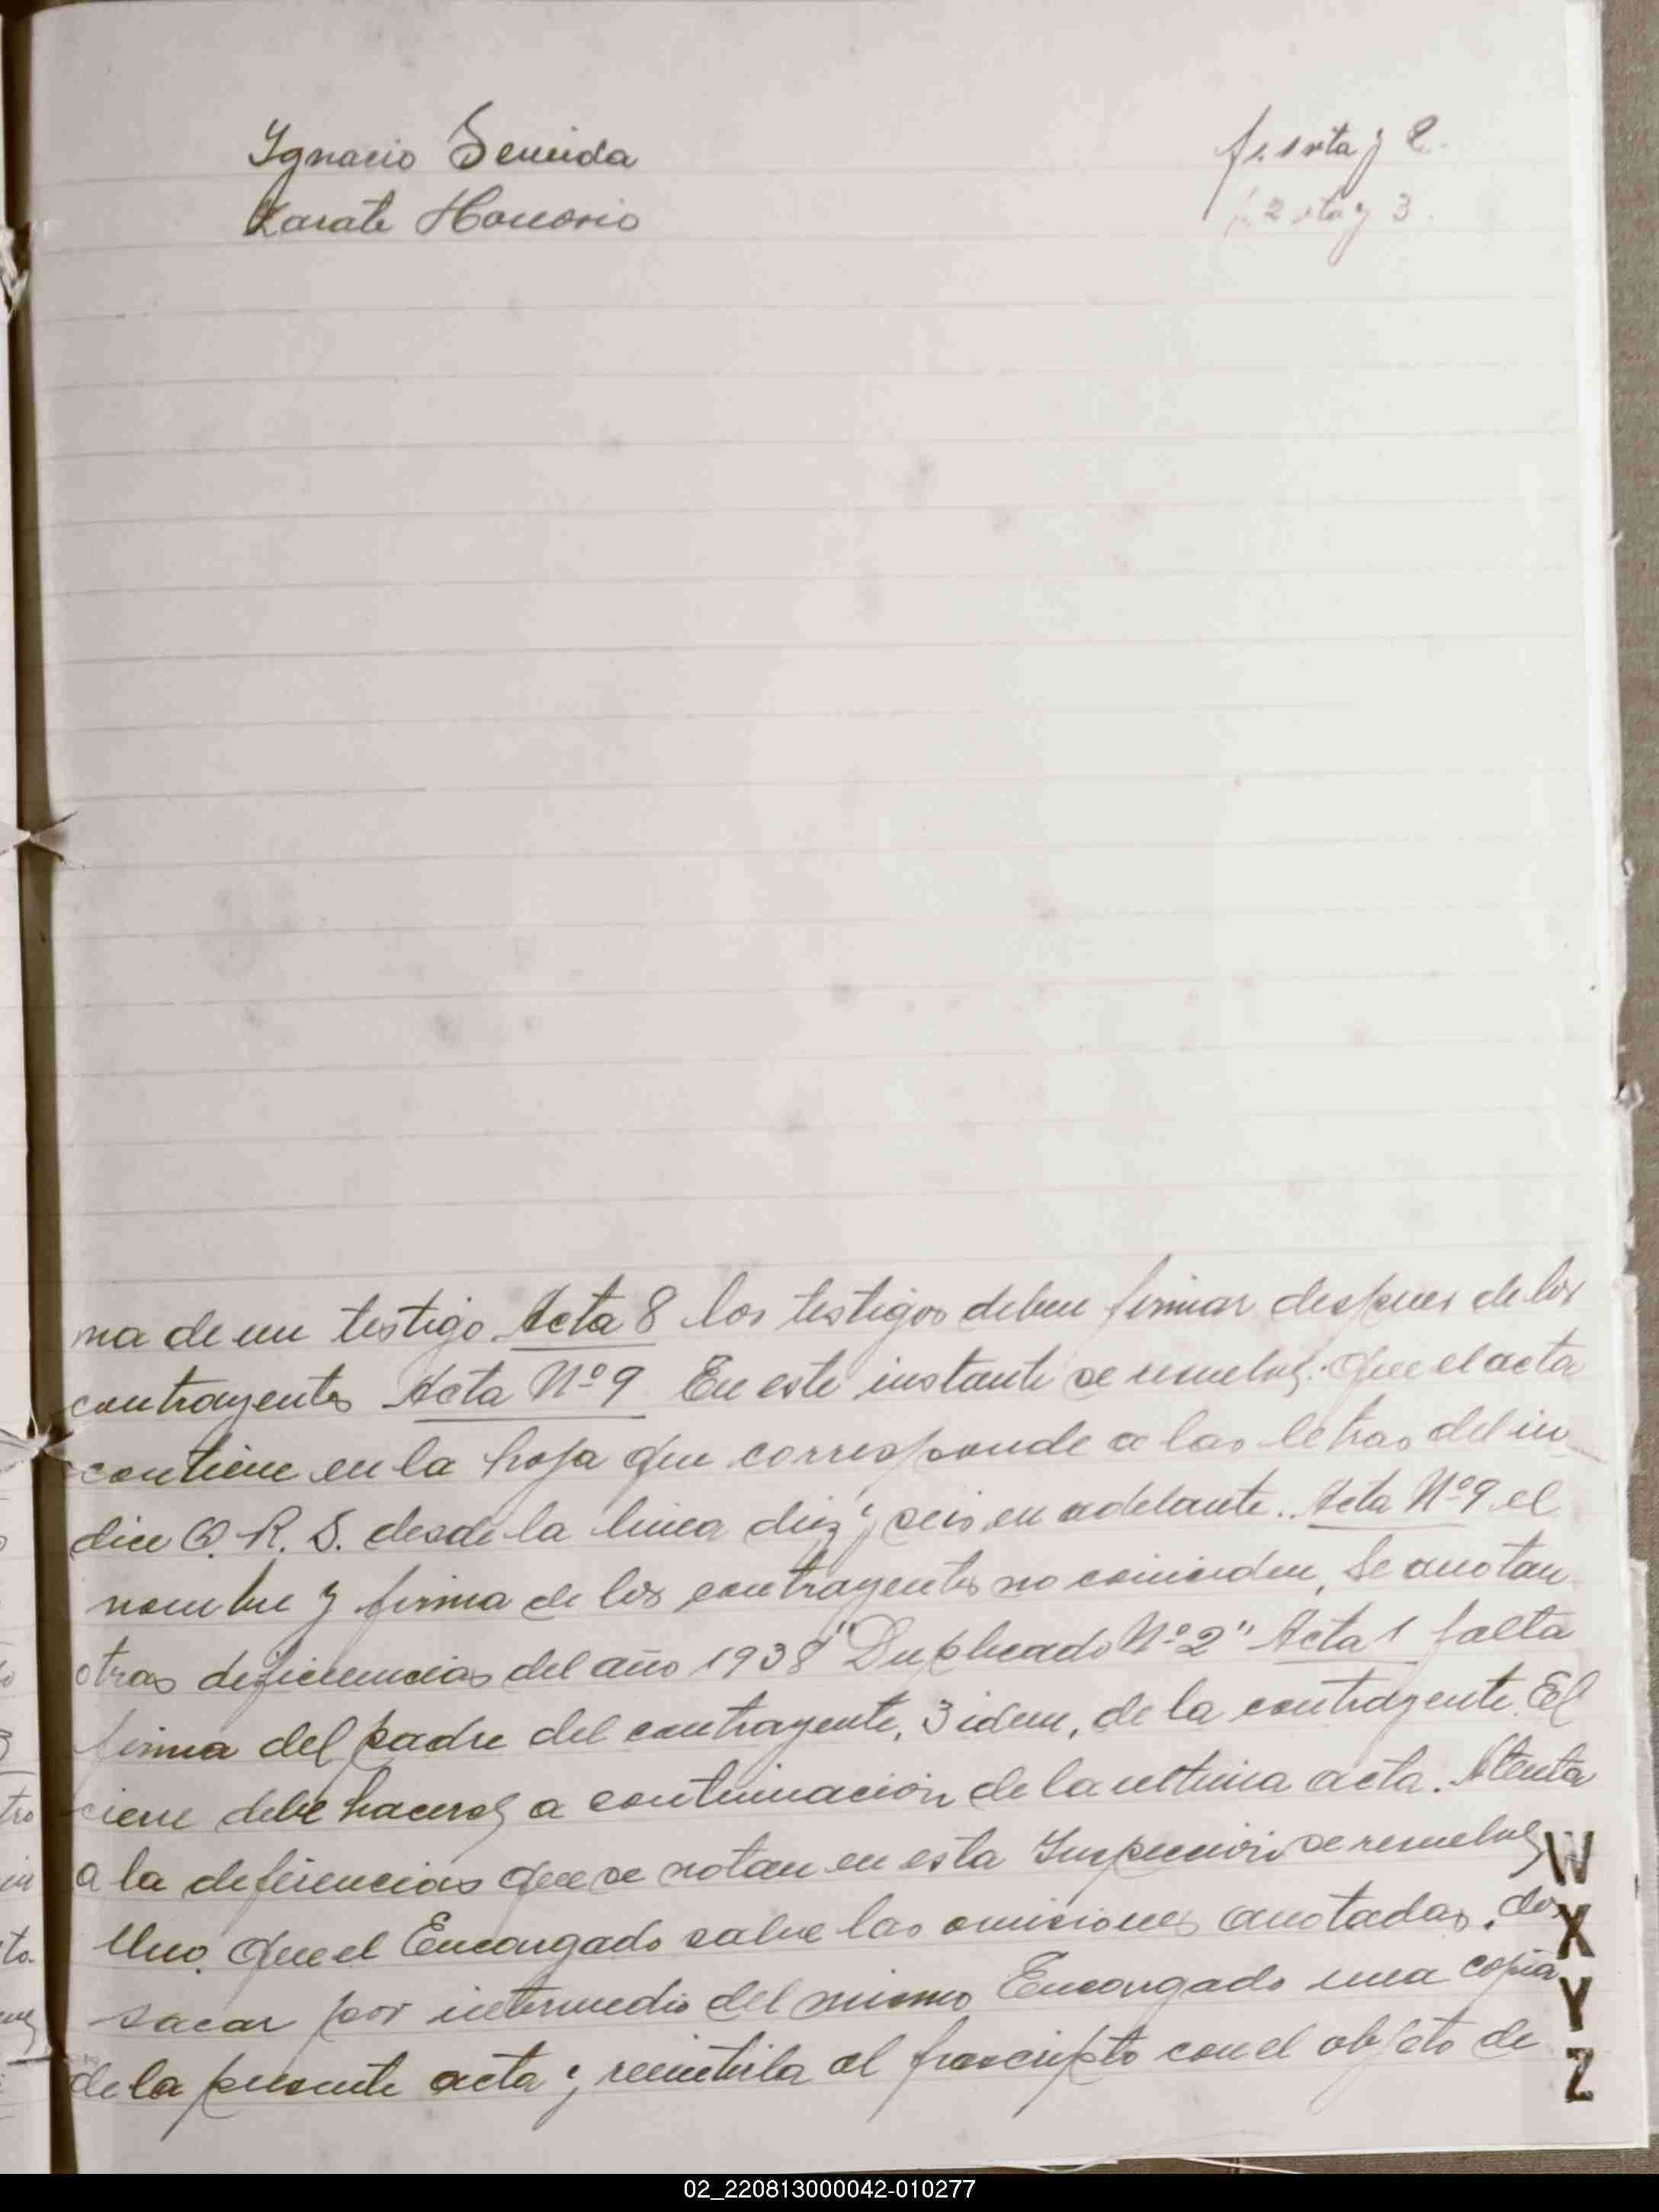 Ygnacio Senida fs. 1 vta y 2.
Zarate Honorio f. 2 vta y 3.
ma de un testigo. Acta 8 los testigos deben firmar despues de los
contrayentes Acta Nº 9. En este instante se resuelve: Que el acta
contiene en la hoja que corresponde a las letras del in_
dice Q. R. S. desde la linea diez y seis en adelante. Acta Nº 9 el
nombre y firma de los contrayentes no coinciden, Se anotan
otras deficiencias del año 1938 "Duplicado Nº 2" Acta 1 falta
firma del padre del contrayente, 3 idem, de la contrayente. El
cierre debe hacerse a continuacion de la ultima acta. Atenta
a la deficiencias que se notan en esta Inspeccion se resuelve
Uno. Que el Encargado salve las omisiones anotadas, dos
sacar por intermedio del mismo Encargado una copia
de la presente acta y remitirla al proscripto con el objeto de
W
X
Y
Z
02_220813000042-010277